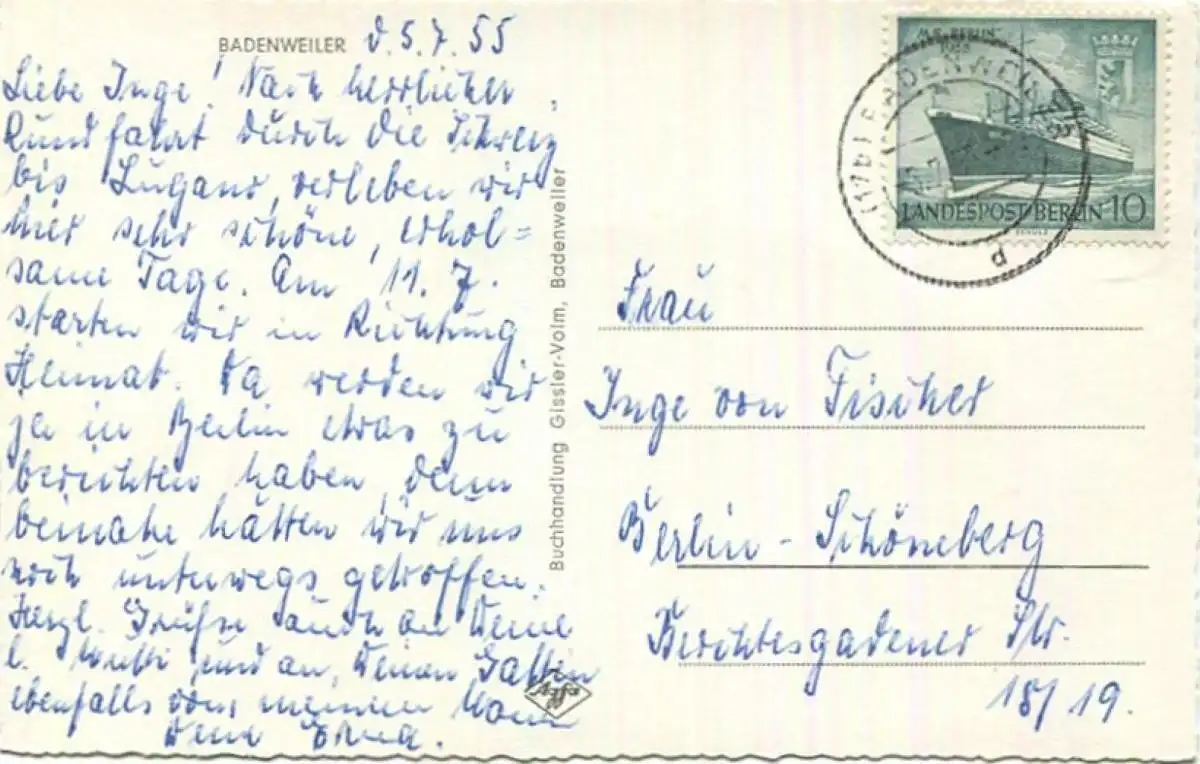 BADENWEILER d. 5. 7. 55
Liebe Inge! Nach herrlicher
Rundfahrt durch die Schweiz
bis Lugano, verleben wir
hier sehr schöne, erhol=
same Tage. Am 11. 7.
starten wir in Richtung
Heimat. Da werden wir
ja in Berlin etwas zu
berichten haben, denn
beinahe hätten wir uns
noch unterwegs getroffen.
Herzl. Grüße auch an Deine
l. Mutti und an Deinen Gatten
ebenfalls von meinem Mann
Deine Erika.
Buchhandlung Gissler-Volm, Badenweiler
Agfa
M.S. "BERLIN"
1955
LANDESPOST BERLIN 10
BADENWEILER
d
Frau
Inge von Fischer
Berlin - Schöneberg
Berchtesgadener Str.
18/19.